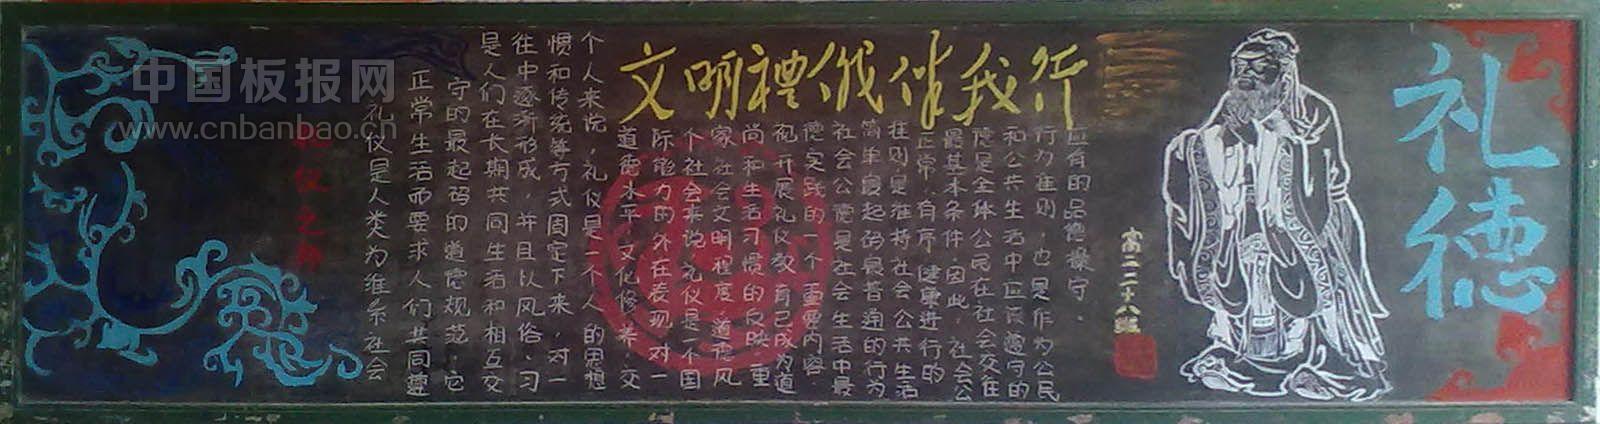 中国板报网
www.cnbanbao.cn
礼仪之邦
文明禮儀伴我行
礼仪是人类为维系社会
正常生活而要求人们共同遵
守的最起码的道德规范,它
是人们在长期共同生活和相互交
往中逐渐形成,并且以风俗、习
惯和传统等方式固定下来.对一
个人来说,礼仪是一个人的思想
道德水平,文化修养,交
际能力的外在表现,对一
个社会来说,礼仪是一个国
家社会文明程度,道德风
尚和生活习惯的反映.重
视,开展礼仪教育已成为道
德实践的一个重要内容.
社会公德是社会生活中最
简单最起码最普通的行为
准则是维持社会公共生活
正常,有序,健康进行的
最基本条件,因此,社会公
德是全体公民在社会交往
和公共生活中应该遵守的
行为准则,也是作为公民
应有的品德操守.
高二二十八班
礼德